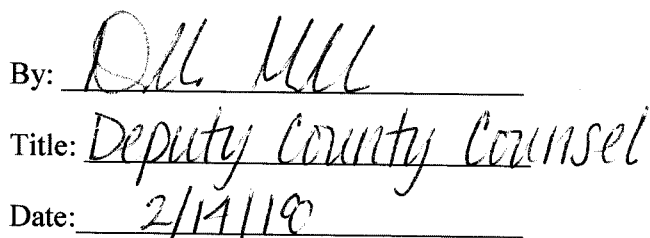 By:
Title: Deputy County Counsel
Date: 2/14/18